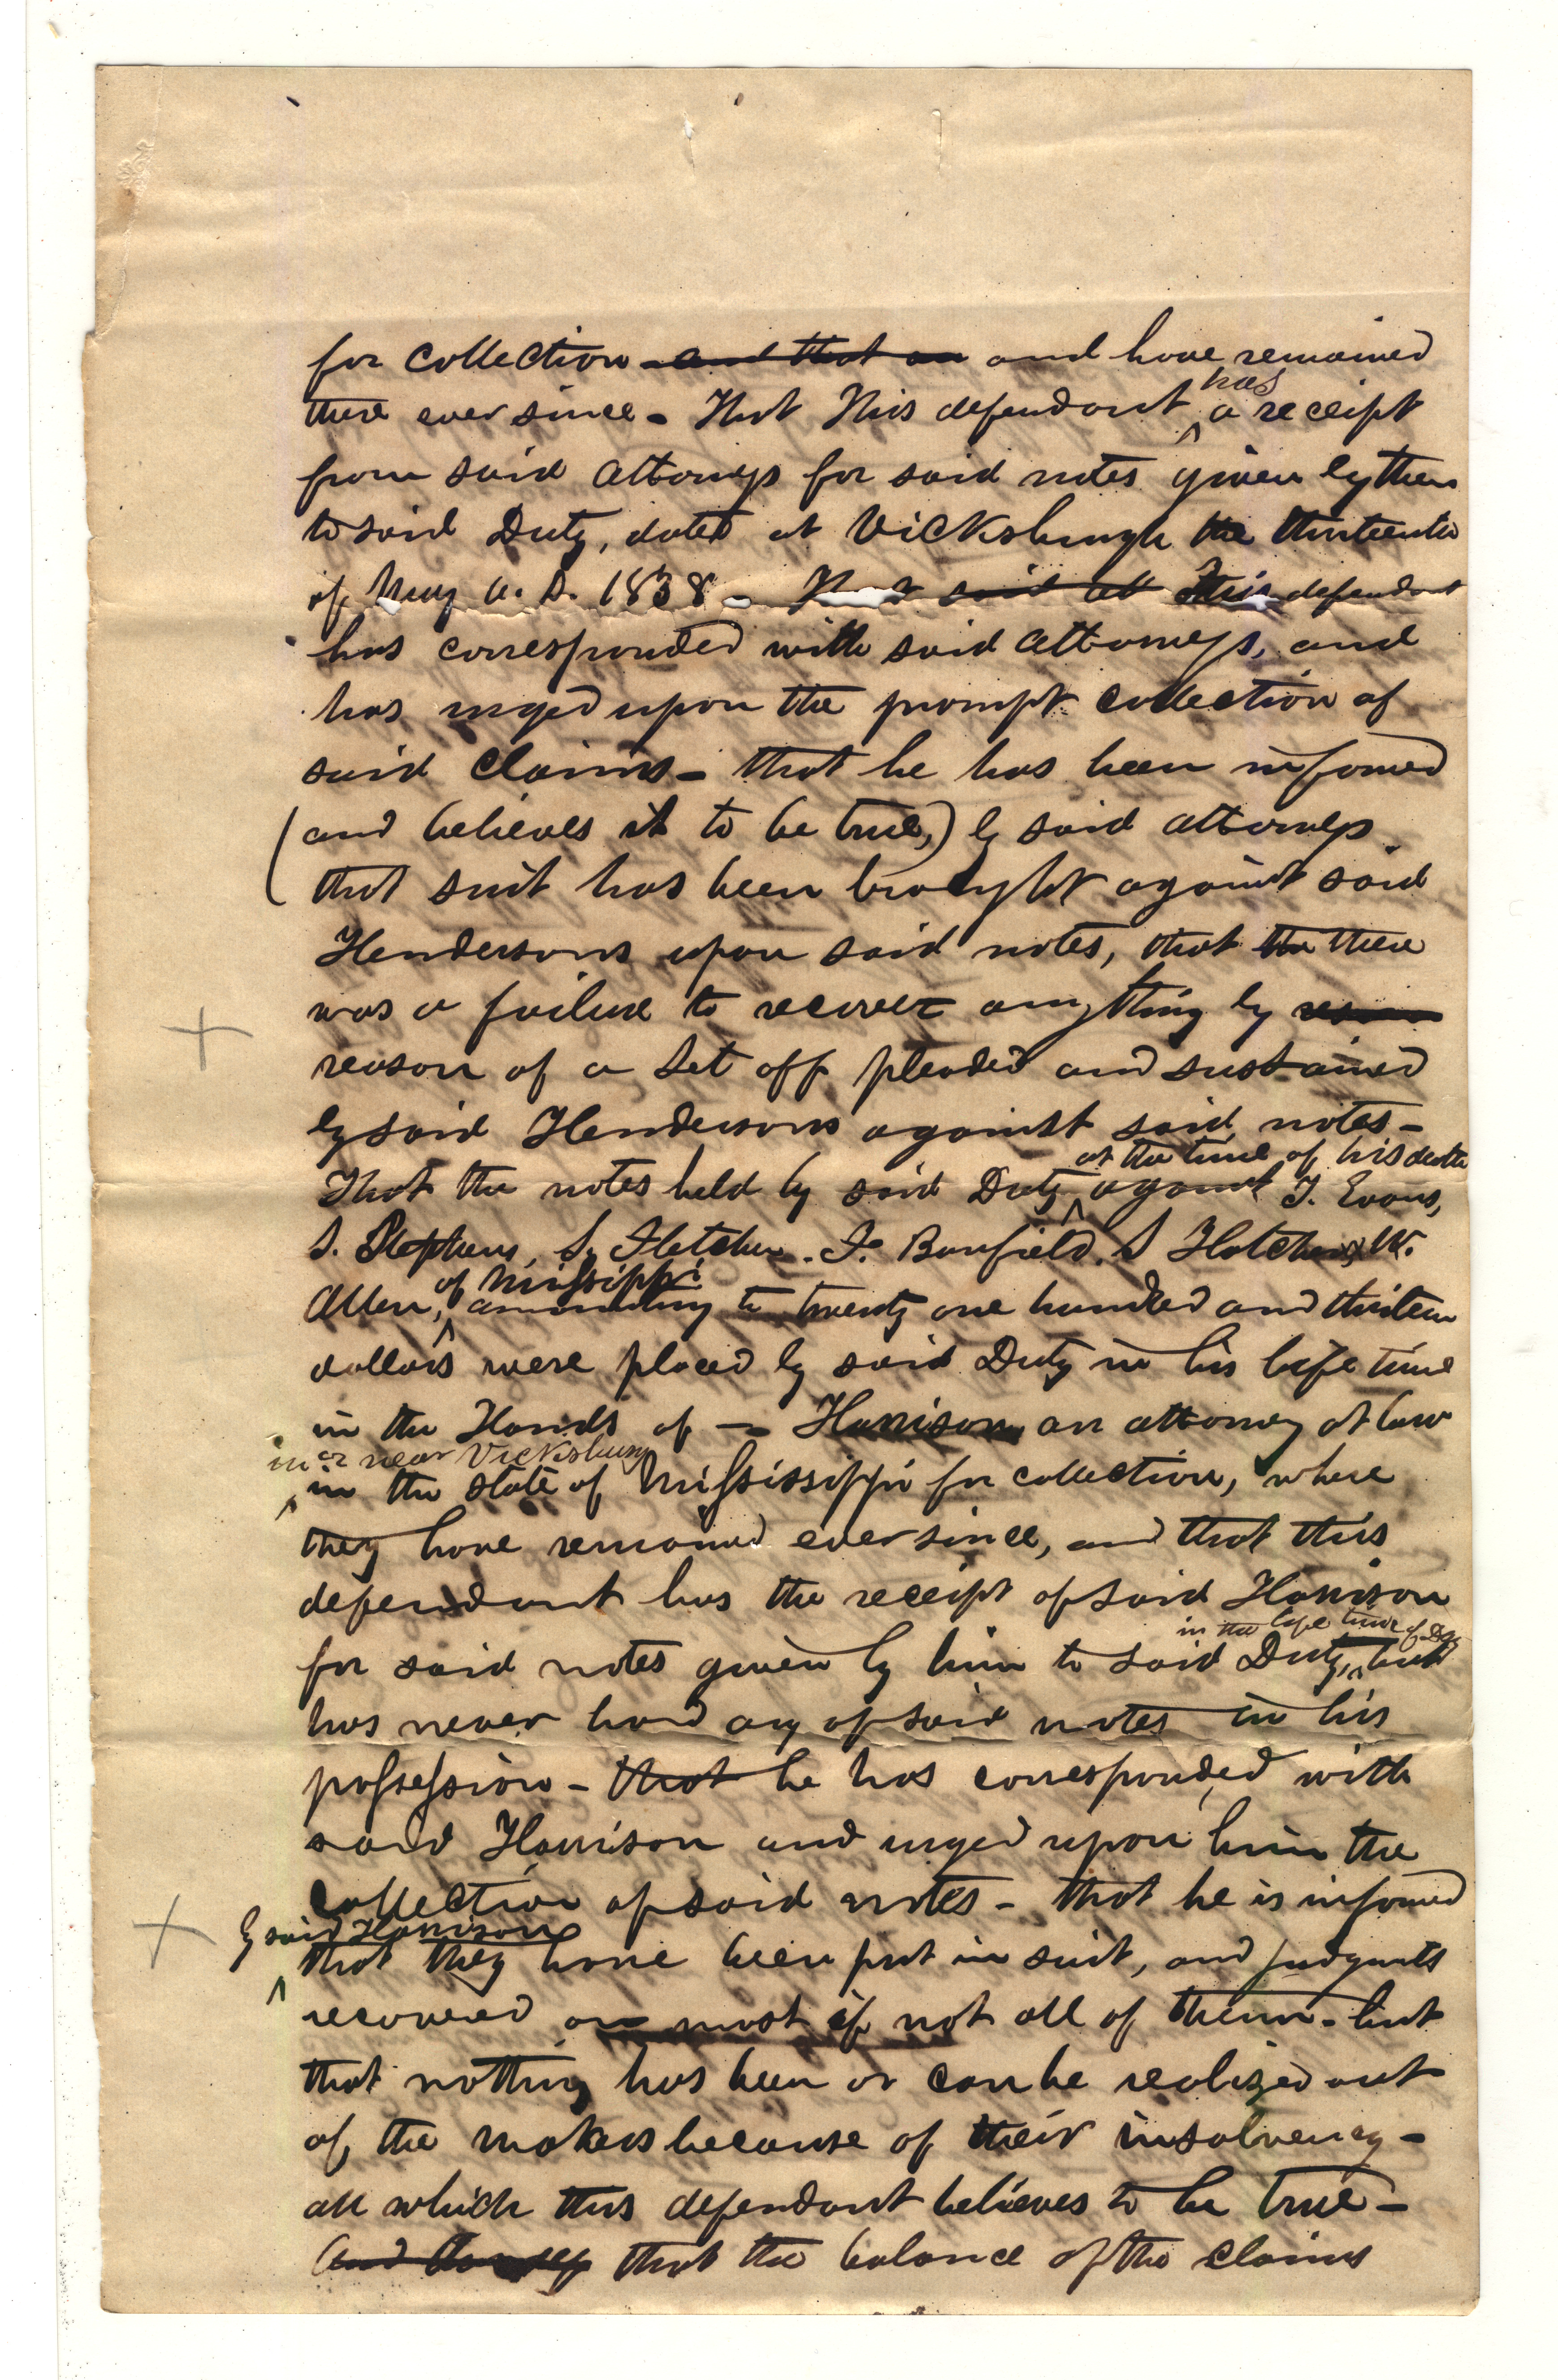 for collection and that an and have remained
there ever since - That This defendant has a receipt
from said attorneys for said notes given by them
to said Duty, dated at Vicksburgh the thirteenth
of May A. D. 1838 - That said att this defendant
has corresponded with said attorneys, and
has urged upon the prompt collection of
said claims - that he has been informed
(and believes it to be true,) by said attorneys
that suit has been brought against said
Hendersons upon said notes, that the there
was a failure to recover anything by
reason of a set off pleaded and sustained
by said Hendersons against said notes -
at the time of his death
That the notes held by said Duty against T. Evans,
S. Stephens, S. Fletcher. F. Banfield. S Hatcher, W.
of Missippi
Allen, amounting to twenty one hundred and thirteen
dollars were placed by said Duty in his life time
in the Hands of - Harrison an attorney at law
in or near Vicksburg
in the state of Mississippi for collection, where
they have remained ever since, and that this
defendant has the receipt of said Harrison
in the life time of
for said notes given by him to said Duty, but
has never had any of said notes in his
possession - that he has corresponded with
said Harrison and urged upon him the
collection of said notes - that he is informed
by said Harrison
that they have been put in suit, and judgments
recovered on most if not all of them - but
that nothing has been or can be realized out
of the makers because of their insolvency -
all which this defendant believes to be true -
And that the balance of the claims